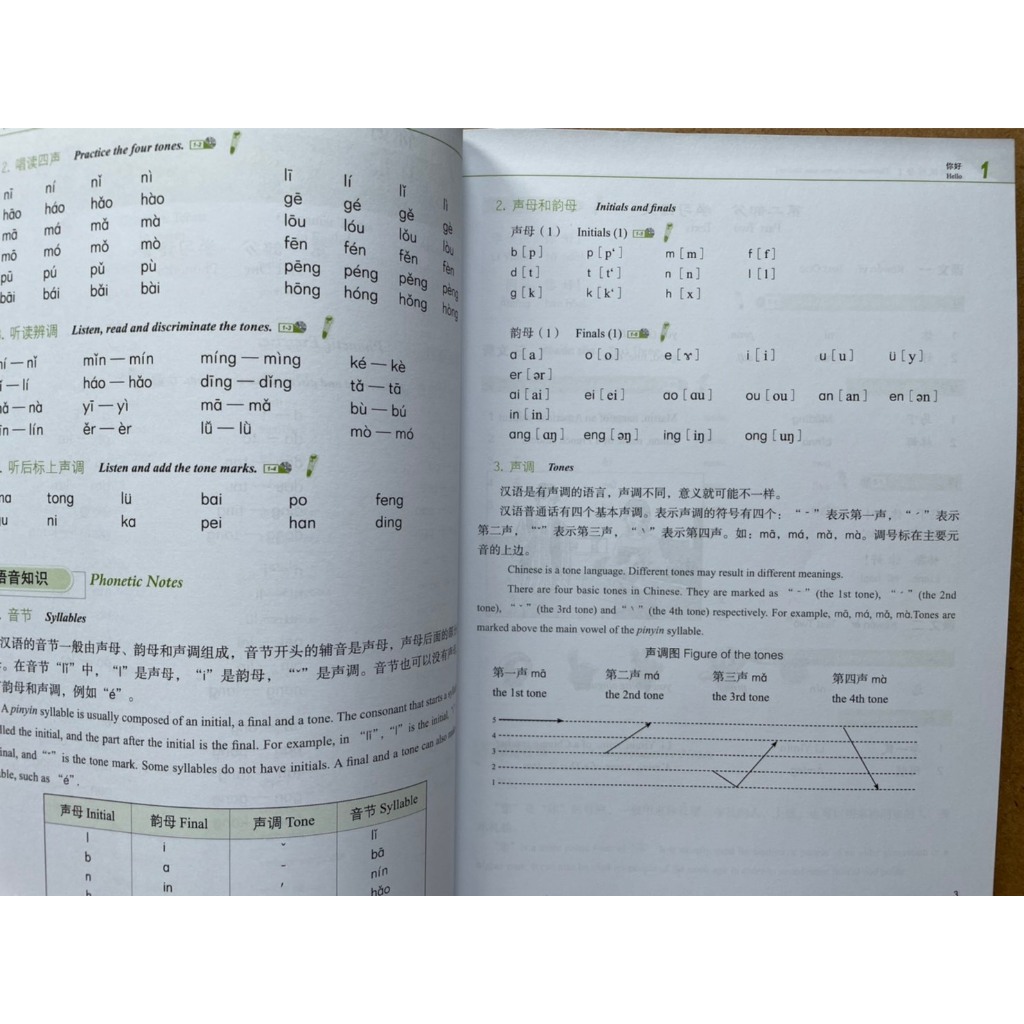 2. 唱读四声 Practice the four tones. 1-2
nī ní nǐ nì lī lí lǐ lì
hāo háo hǎo hào gē gé gě gè
mā má mǎ mà lōu lóu lǒu lòu
mō mó mǒ mò fēn fén fěn fèn
pū pú pǔ pù pēng péng pěng pèng
bāi bái bǎi bài hōng hóng hǒng hòng
. 听读辨调 Listen, read and discriminate the tones. 1-3
ní — nǐ mǐn — mín míng — mìng ké — kè
— lí háo — hǎo dīng — dǐng tǎ — tā
nǎ — nà yī — yì mā — mǎ bù — bú
— lín ěr — èr lǖ — lǜ mò — mó
. 听后标上声调 Listen and add the tone marks. 1-4
na tong lü bai po feng
ni ka pei han ding
语音知识 Phonetic Notes
. 音节 Syllables
汉语的音节一般由声母、韵母和声调组成，音节开头的辅音是声母，声母后面的部分
。在音节“lǐ”中，“l”是声母，“i”是韵母，“ˇ”是声调。音节也可以没有声母，
韵母和声调，例如“é”。
A pinyin syllable is usually composed of an initial, a final and a tone. The consonant that starts a
lled the initial, and the part after the initial is the final. For example, in “lǐ”, “l” is the initial, “
inal, and “ˇ” is the tone mark. Some syllables do not have initials. A final and a tone can also
ble, such as “é”.
声母 Initial 韵母 Final 声调 Tone 音节 Syllable
l i ˇ lǐ
b a ˉ bā
n in ˊ nín
hǎo
你好
Hello 1
2. 声母和韵母 Initials and finals
声母（1） Initials (1) 1-5
b [ p ] p [ p‘ ] m [ m ] f [ f ]
d [ t ] t [ t‘ ] n [ n ] l [ l ]
g [ k ] k [ k‘ ] h [ x ]
韵母（1） Finals (1) 1-6
a [ a ] o [ o ] e [ ɤ ] i [ i ] u [ u ] ü [ y ]
er [ ər ]
ai [ ai ] ei [ ei ] ao [ ɑu ] ou [ ou ] an [ an ] en [ ən ]
in [ in ]
ang [ ɑŋ ] eng [ əŋ ] ing [ iŋ ] ong [ uŋ ]
3. 声调 Tones
汉语是有声调的语言，声调不同，意义就可能不一样。
汉语普通话有四个基本声调。表示声调的符号有四个：“ˉ”表示第一声，“ˊ”表示
第二声，“ˇ”表示第三声，“ˋ”表示第四声。如：mā，má，mǎ，mà。调号标在主要元
音的上边。
Chinese is a tone language. Different tones may result in different meanings.
There are four basic tones in Chinese. They are marked as “ˉ” (the 1st tone), “ˊ” (the 2nd
tone), “ˇ” (the 3rd tone) and “ˋ” (the 4th tone) respectively. For example, mā, má, mǎ, mà.Tones are
marked above the main vowel of the pinyin syllable.
声调图 Figure of the tones
第一声 mā 第二声 má 第三声 mǎ 第四声 mà
the 1st tone the 2nd tone the 3rd tone the 4th tone
5
4
3
2
1
3